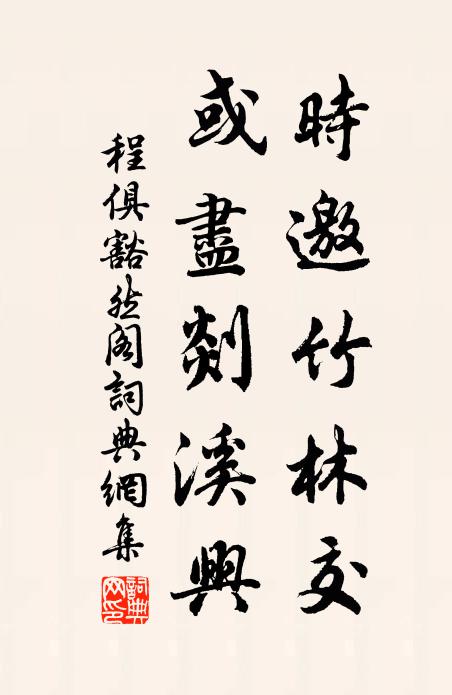 時邀竹林交
或盡剡溪興
程俱豁然閣詞典網集
詞典网印